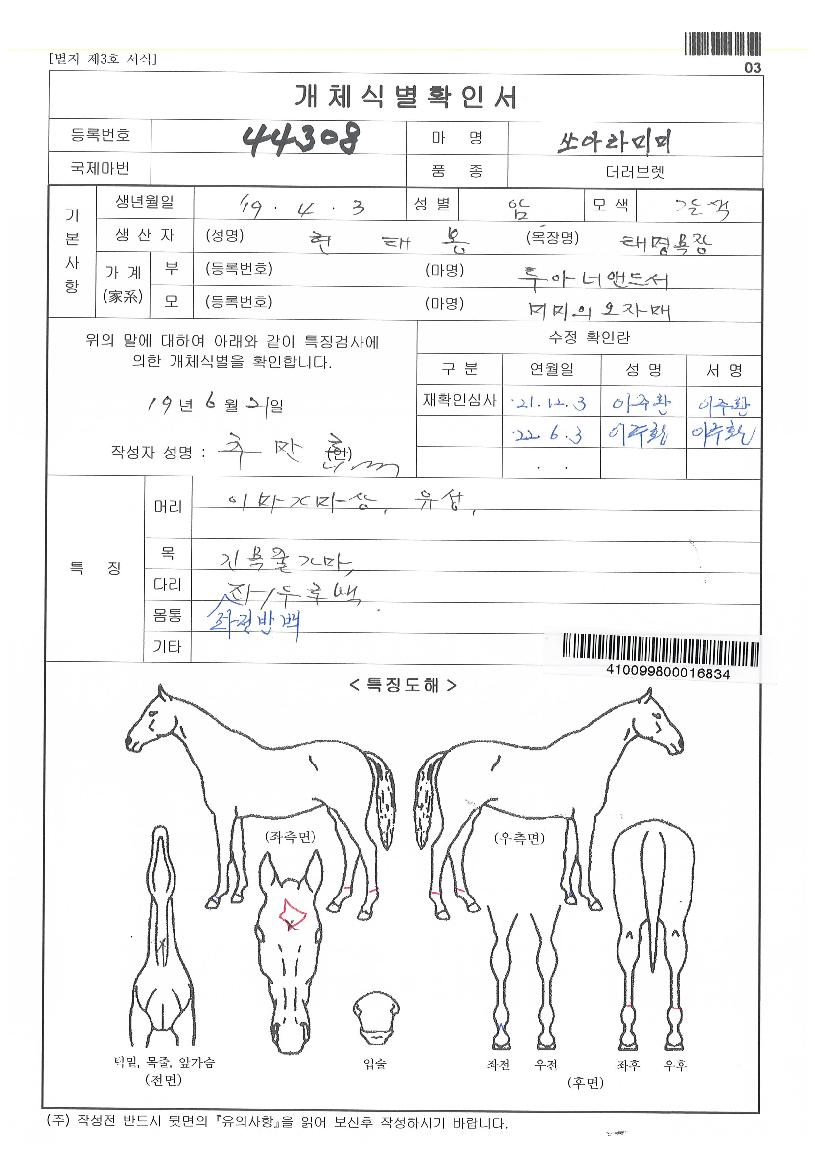 [별지 제3호 서식]
03
개체식별확인서
등록번호 44308 마 명 쏘아라미미
국제마번 품 종 더러브렛
기본사항
생년월일 '19. 4. 3 성별 암 모색 갈색
생산자 (성명) 현태봉 (목장명) 태명목장
가계(家系) 부 (등록번호) (마명) 투아너앤드서
모 (등록번호) (마명) 미미의오자매
위의 말에 대하여 아래와 같이 특징검사에
의한 개체식별을 확인합니다.
19년 6월 21일
작성자 성명 : 추만 (인)
수정 확인란
구 분 연월일 성 명 서 명
재확인심사 '21.12.3 이주환 이주환
'22.6.3 이주환 이주환
. .
특 징
머리 이마가마상, 유성,
목 지목줄가마,
다리 좌/우후백
좌전반백
몸통
기타
410099800016834
< 특징도해 >
(좌측면) (우측면)
턱밑, 목줄, 앞가슴
(전면)
입술
좌전 우전 좌후 우후
(후면)
(주) 작성전 반드시 뒷면의 『유의사항』을 읽어 보신후 작성하시기 바랍니다.